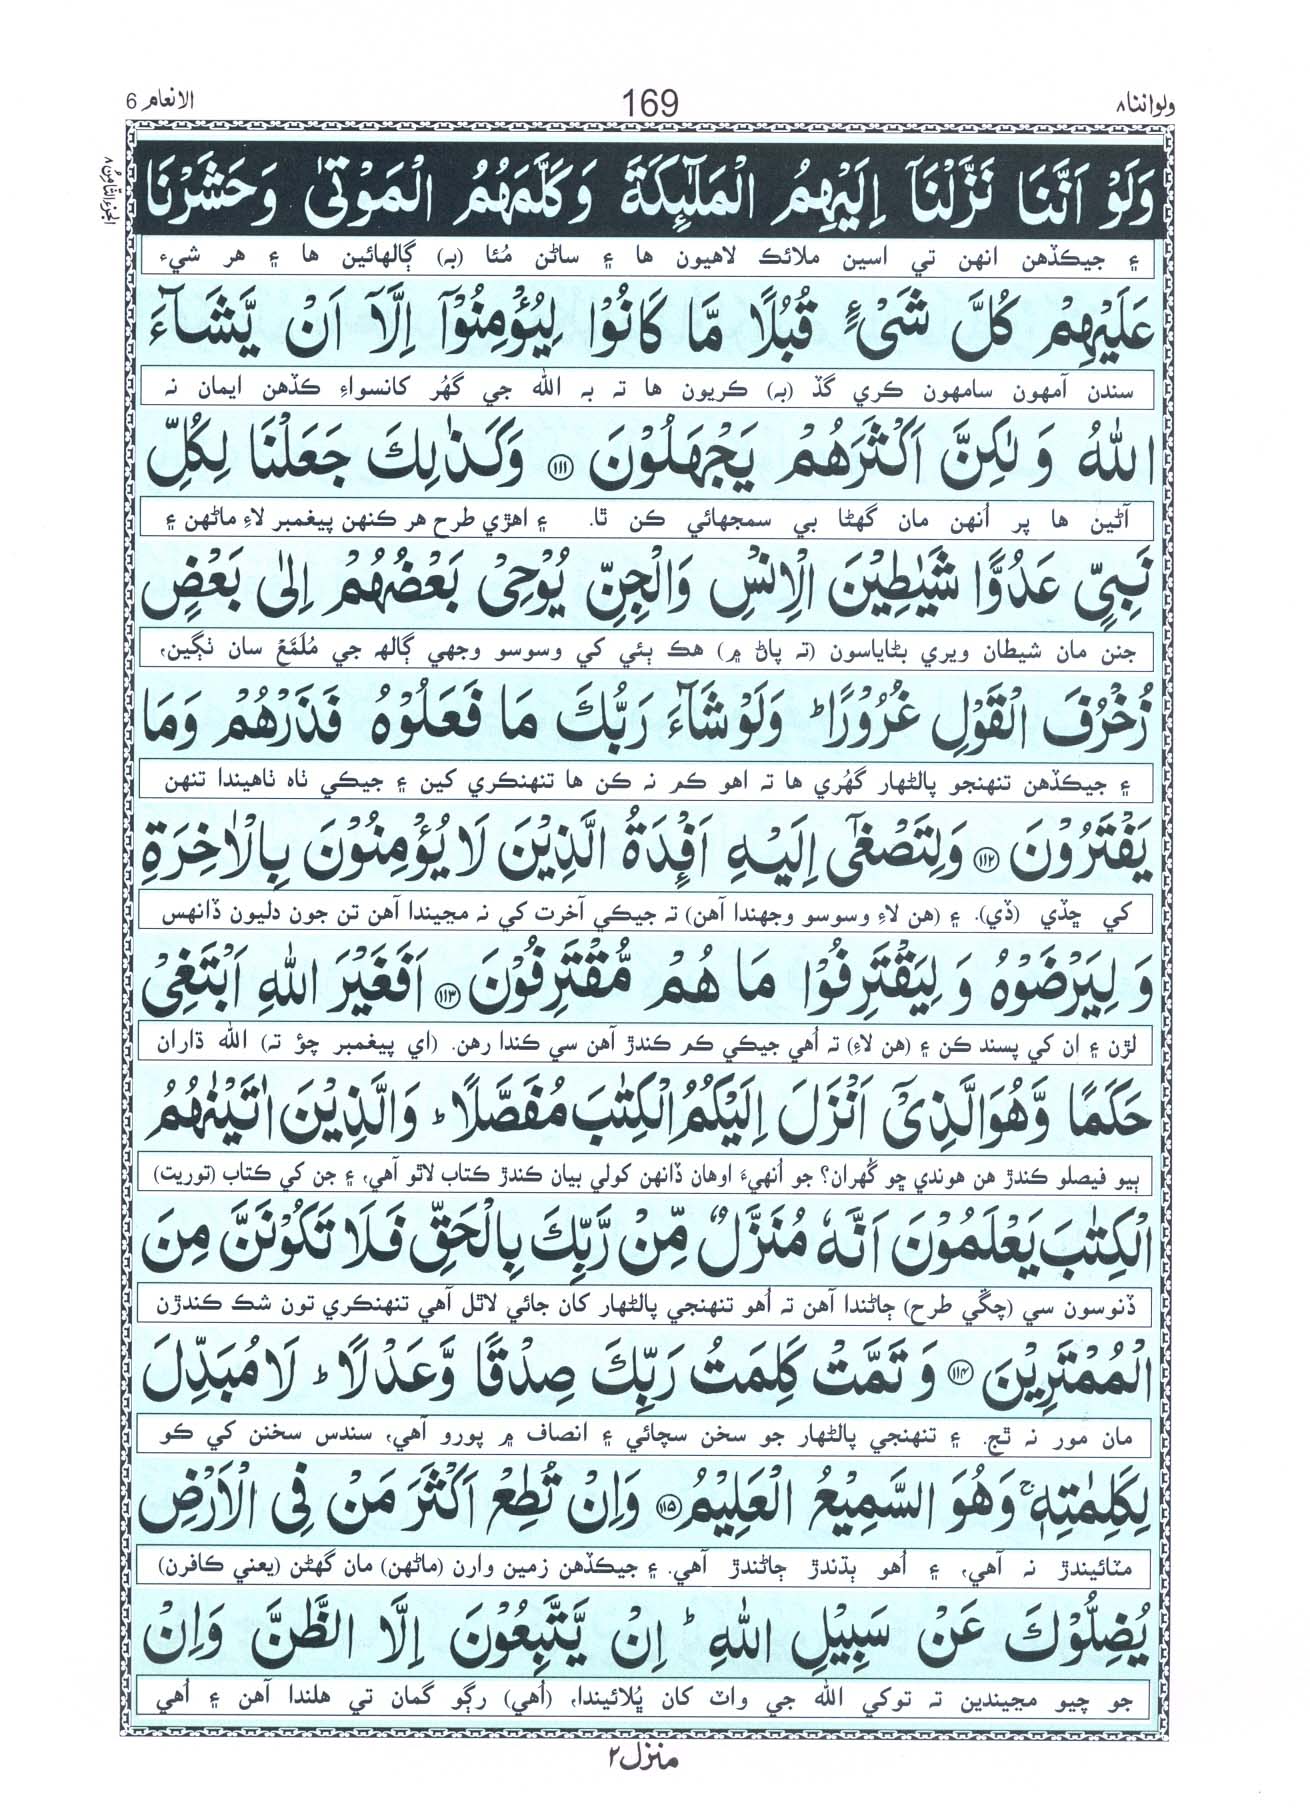 ولواننا۸
169
الانعام 6
الجزء الثامن ۸
وَلَوْ اَنَّنَا نَزَّلْنَاۤ اِلَیْهِمُ الْمَلٰٓىِٕكَةَ وَكَلَّمَهُمُ الْمَوْتٰى وَحَشَرْنَا
۽ جيڪڏهن انهن تي اسين ملائڪ لاهيون ها ۽ ساڻن مُئا (به) ڳالهائين ها ۽ هر شيء
عَلَیْهِمْ كُلَّ شَیْءٍ قُبُلًا مَّا كَانُوْا لِیُؤْمِنُوْۤا اِلَّاۤ اَنْ یَّشَآءَ
سندن آمهون سامهون ڪري گڏ (به) ڪريون ها ته به الله جي گهُر کانسواءِ ڪڏهن ايمان نه
اللّٰهُ وَ لٰكِنَّ اَكْثَرَهُمْ یَجْهَلُوْنَ ۝۱۱۱ وَكَذٰلِكَ جَعَلْنَا لِكُلِّ
آڻين ها پر اُنهن مان گهڻا بي سمجهائي ڪن ٿا. ۽ اهڙي طرح هر ڪنهن پيغمبر لاءِ ماڻهن ۽
نَبِیٍّ عَدُوًّا شَیٰطِیْنَ الْاِنْسِ وَالْجِنِّ یُوْحِیْ بَعْضُهُمْ اِلٰى بَعْضٍ
جنن مان شيطان ويري بڻاياسون (ته پاڻ ۾) هڪ ٻئي کي وسوسو وجهي ڳالهه جي مُلَمَّعْ سان ٺڳين،
زُخْرُفَ الْقَوْلِ غُرُوْرًا ؕ وَلَوْ شَآءَ رَبُّكَ مَا فَعَلُوْهُ فَذَرْهُمْ وَمَا
۽ جيڪڏهن تنهنجو پالڻهار گهُري ها ته اهو ڪم نه ڪن ها تنهنڪري کين ۽ جيڪي ٺاهه ٺاهيندا تنهن
یَفْتَرُوْنَ ۝۱۱۲ وَلِتَصْغٰۤى اِلَیْهِ اَفْـِٕدَةُ الَّذِیْنَ لَا یُؤْمِنُوْنَ بِالْاٰخِرَةِ
کي ڇڏي (ڏي). ۽ (هن لاءِ وسوسو وجهندا آهن) ته جيڪي آخرت کي نه مڃيندا آهن تن جون دليون ڏانهس
وَ لِیَرْضَوْهُ وَ لِیَقْتَرِفُوْا مَا هُمْ مُّقْتَرِفُوْنَ ۝۱۱۳ اَفَغَیْرَ اللّٰهِ اَبْتَغِیْ
لڙن ۽ ان کي پسند ڪن ۽ (هن لاءِ) ته اُهي جيڪي ڪم ڪندڙ آهن سي ڪندا رهن. (اي پيغمبر چؤ ته) الله ڌاران
حَكَمًا وَّهُوَ الَّذِیْۤ اَنْزَلَ اِلَیْكُمُ الْكِتٰبَ مُفَصَّلًا ؕ وَالَّذِیْنَ اٰتَیْنٰهُمُ
ٻيو فيصلو ڪندڙ هن هوندي ڇو گُهران؟ جو اُنهيءَ اوهان ڏانهن کولي بيان ڪندڙ ڪتاب لاٿو آهي، ۽ جن کي ڪتاب (توريت)
الْكِتٰبَ یَعْلَمُوْنَ اَنَّهٗ مُنَزَّلٌ مِّنْ رَّبِّكَ بِالْحَقِّ فَلَا تَكُوْنَنَّ مِنَ
ڏنوسون سي (چڱي طرح) ڄاڻندا آهن ته اُهو تنهنجي پالڻهار کان جائي لاٿل آهي تنهنڪري تون شڪ ڪندڙن
الْمُمْتَرِیْنَ ۝۱۱۴ وَ تَمَّتْ كَلِمَتُ رَبِّكَ صِدْقًا وَّعَدْلًا ؕ لَا مُبَدِّلَ
مان مور نه ٿج. ۽ تنهنجي پالڻهار جو سخن سچائي ۽ انصاف ۾ پورو آهي، سندس سخنن کي ڪو
لِكَلِمٰتِهٖ ۚ وَهُوَ السَّمِیْعُ الْعَلِیْمُ ۝۱۱۵ وَاِنْ تُطِعْ اَكْثَرَ مَنْ فِی الْاَرْضِ
مٽائيندڙ نه آهي، ۽ اُهو ٻڌندڙ ڄاڻندڙ آهي. ۽ جيڪڏهن زمين وارن (ماڻهن) مان گهڻن (يعني ڪافرن)
یُضِلُّوْكَ عَنْ سَبِیْلِ اللّٰهِ ؕ اِنْ یَّتَّبِعُوْنَ اِلَّا الظَّنَّ وَاِنْ
جو چيو مڃيندين ته توکي الله جي واٽ کان ڀُلائيندا، (اُهي) رڳو گمان تي هلندا آهن ۽ اُهي
منزل۲